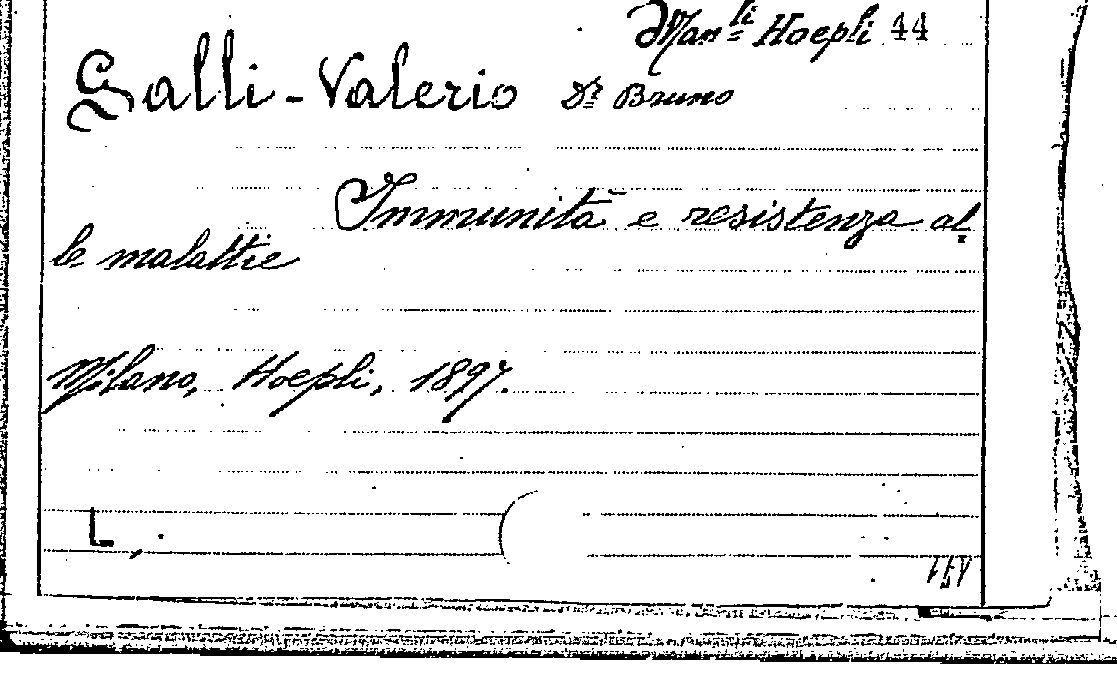 Man.li Hoepli 44
Galli-Valerio Dr Bruno
Immunità e resistenza al
le malattie
Milano, Hoepli, 1897.
L